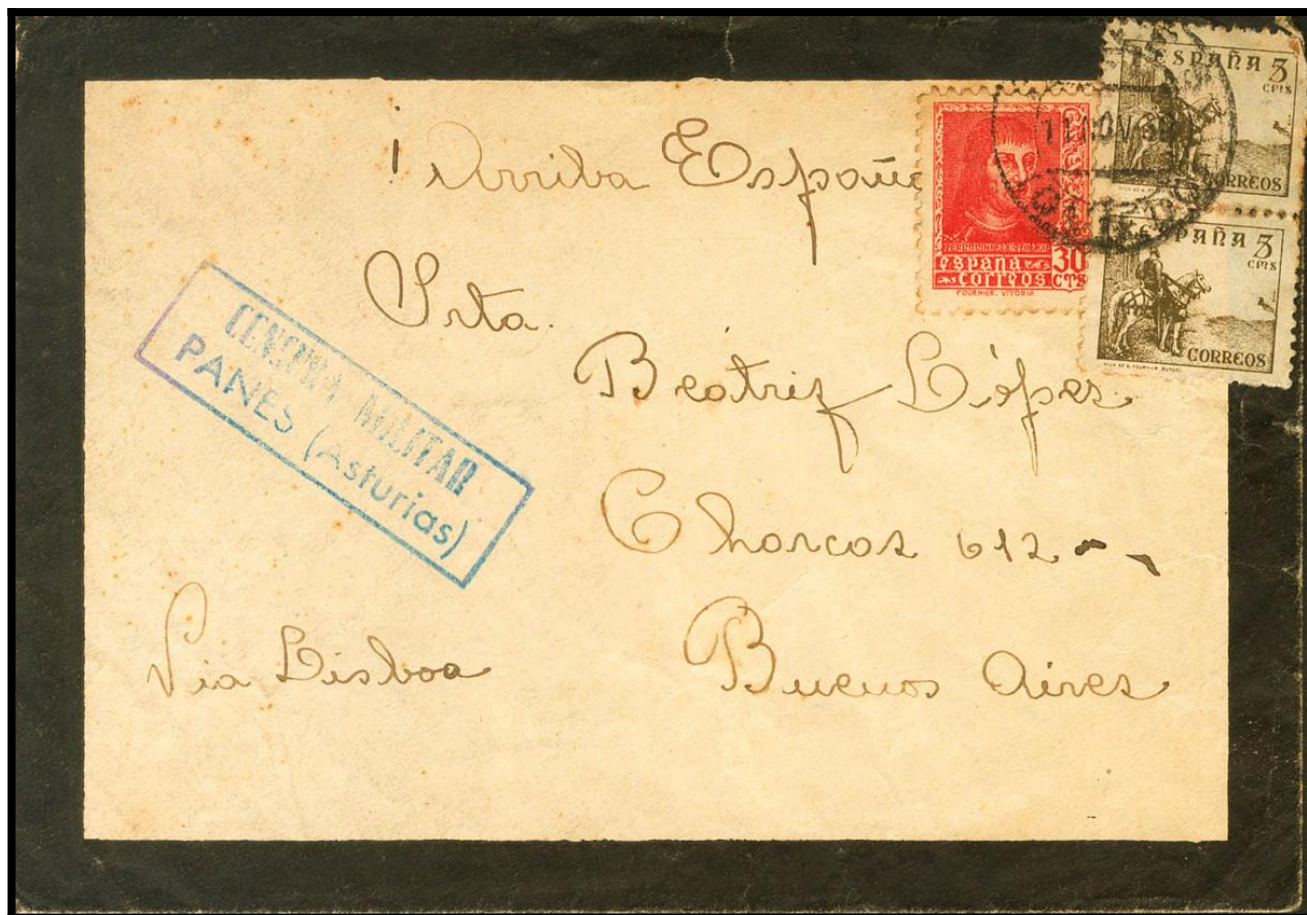 ¡Arriba España
Srta.
Beatriz López
Charcas 612
Buenos Aires
Via Lisboa
CENSURA MILITAR
PANES (Asturias)
españa
correos
30
CTS
FOURNIER. VITORIA
ESPAÑA 5
CTMS
CORREOS
ESPAÑA 5
CTMS
CORREOS